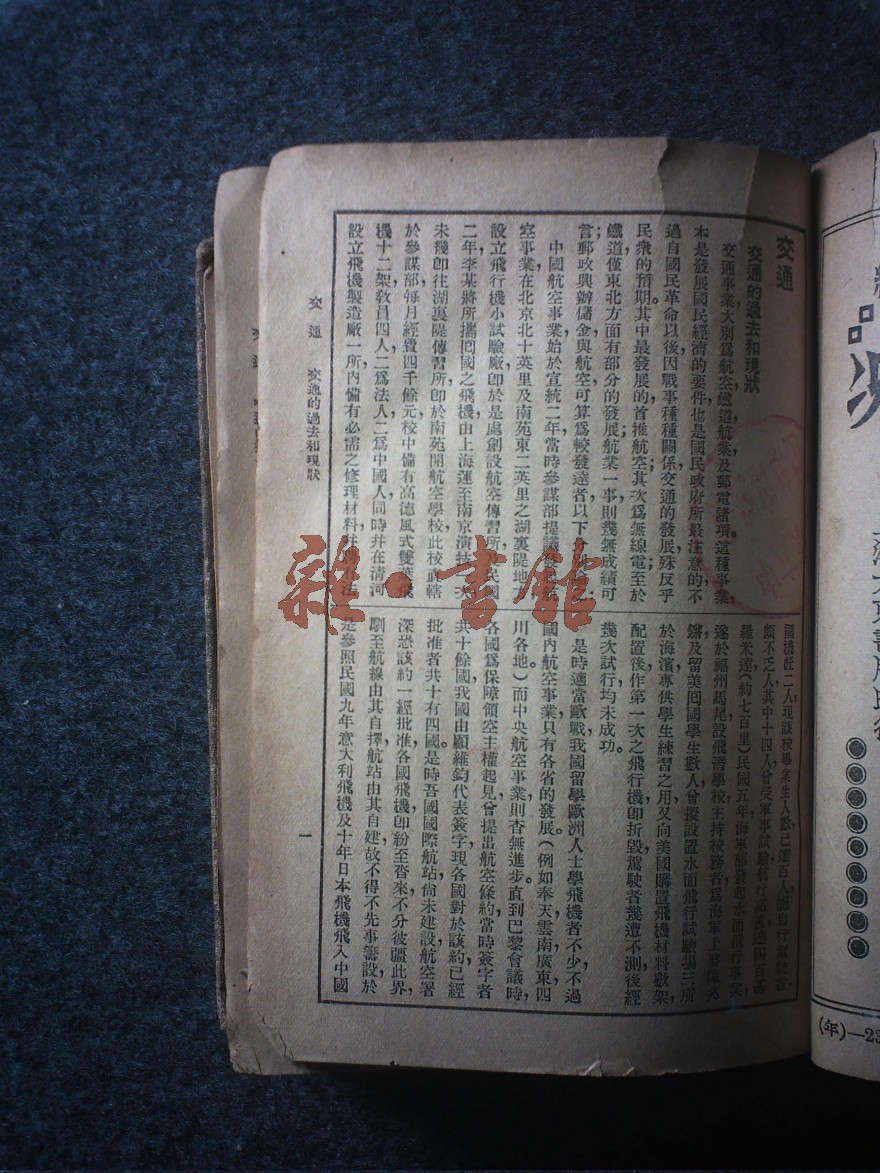 交通
交通的過去和現狀
交通事業大別爲航空鐵道航業及郵電諸項這種事業,
本是發展國民經濟的要件也是國民政府所最注意的不
過自國民革命以後因戰事種種關係交通的發展殊反乎
民衆的預期。其中最發展的首推航空;其次爲無線電;至於
鐵道僅東北方面有部分的發展;航業一事則幾無成績可
言;郵政興辦儲金與航空可算爲較發達者以下
中國航空事業始於宣統二年,當時參謀部提議
空事業在北京北十英里及南苑東二英里之湖裏隄地方
設立飛行機小試驗廠卽於是處創設航空傳習所
二年李某將所攜囘國之飛機由上海運至南京演
未幾卽往湖裏隄傳習所卽於南苑開航空學校此校直轄
於參謀部每月經費四千餘元校中備有高德風式雙葉飛
機十二架教員四人二爲法人二爲中國人同時幷在淸河
設立飛機製造廠一所內備有必需之修理材料
國機匠二人現該校學業生人數已達百人
頗不乏人其中十四人曾受軍事試驗航行
羅米達(約七百里)民國五年海軍部發起水面飛行事業,
遂於福州馬尾設飛潛學校主持校務者爲海軍上將陳兆
鏘及留美囘國學生數人曾擬設置水面飛行試驗場三所
於海濱專供學生練習之用又向美國購置飛機材料數架,
配置後作第一次之飛行機卽折毀駕駛者幾遭不測後經
幾次試行均未成功。
是時適當歐戰,我國留學歐洲人士學飛機者不少不過
國內航空事業只有各省的發展。(例如奉天雲南廣東四
川各地)而中央航空事業則杳無進步。直到巴黎會議時,
各國爲保障領空主權起見曾提出航空條約當時簽字者
共十餘國,我國由顧維鈞代表簽字,現各國對於該約已經
批准者共十有四國。是時吾國國際航站尙未建設,航空署
深恐該約一經批准各國飛機卽紛至沓來不分彼疆此界,
馴至航線由其自擇航站由其自建故不得不先事籌設於
是參照民國九年意大利飛機及十年日本飛機飛入中國
交通 交通的過去和現狀
一
雜·書館
(年)—23